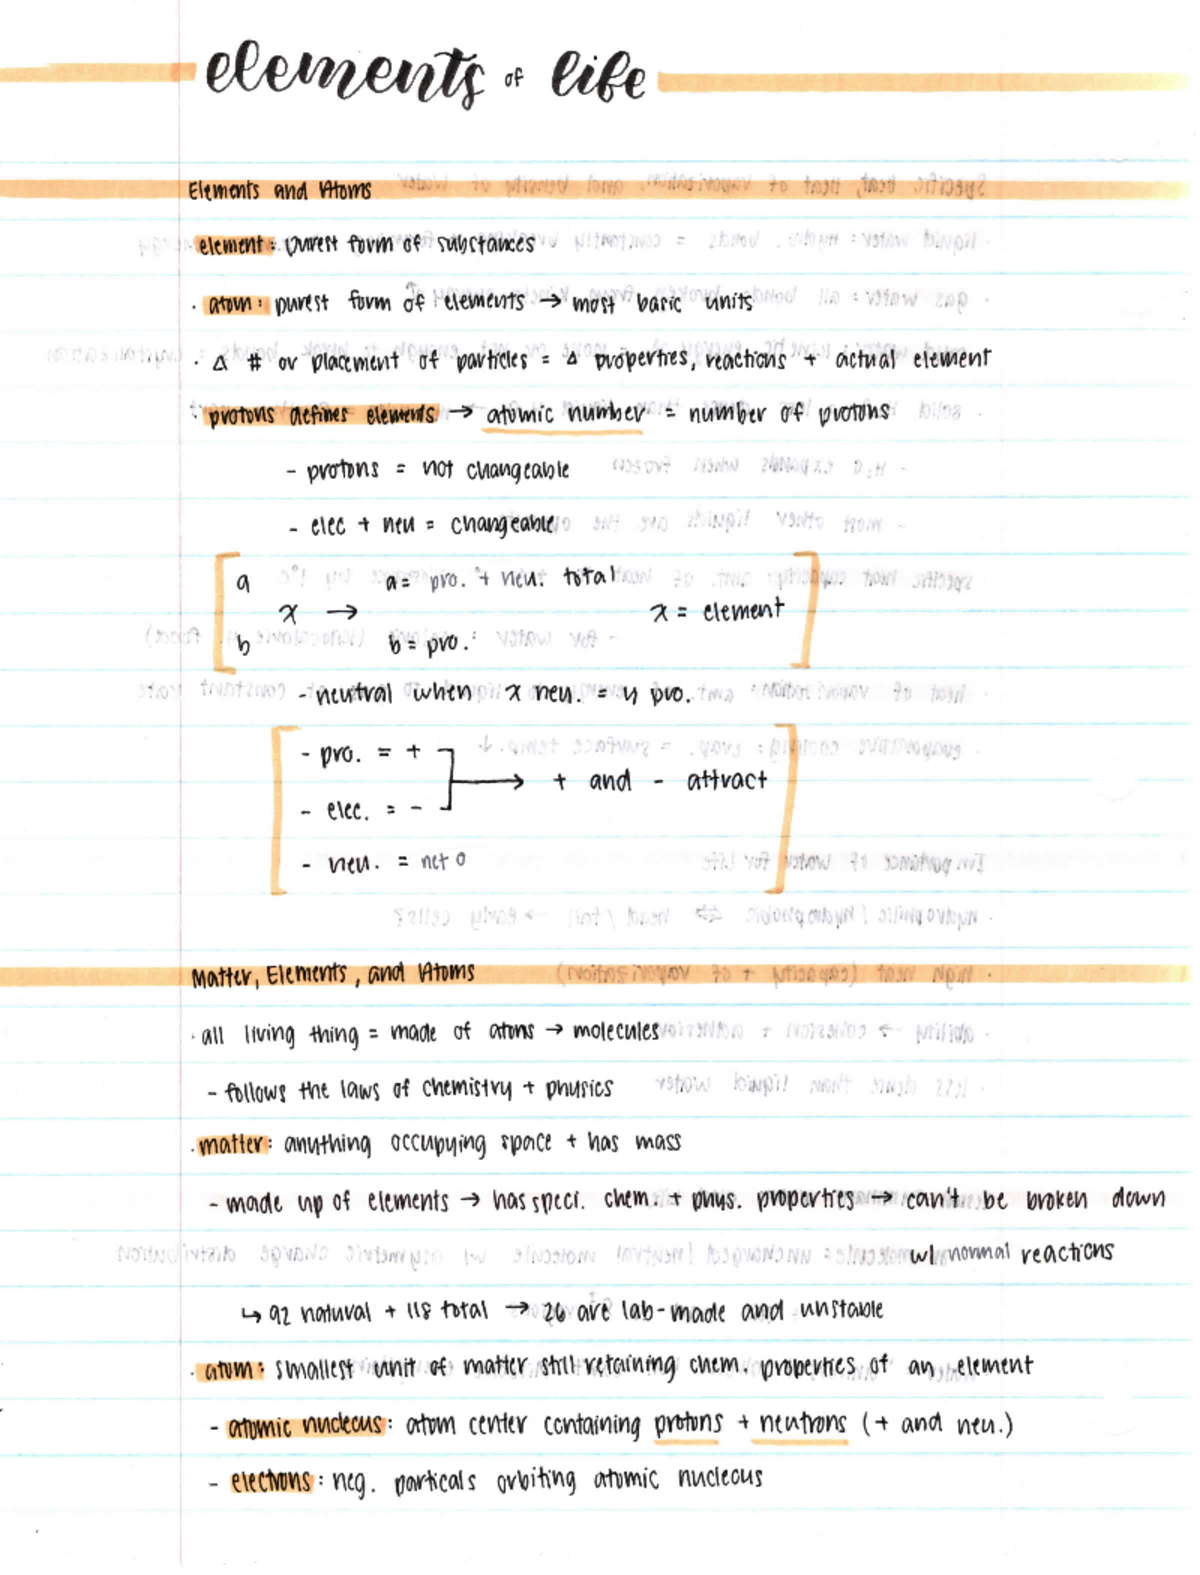 elements of life
Elements and Atoms
element: purest form of substances
· atom: purest form of elements → most basic units
· Δ # or placement of particles = Δ properties, reactions + actual element
· protons defines elements → atomic number = number of protons
- protons = not changeable
- elec + neu = changeable
a a= pro. + neu. total
x → x = element
b b = pro.
- neutral when x neu. = y pro.
- pro. = +
→ + and - attract
- elec. = -
- neu. = net 0
Matter, Elements, and Atoms
· all living thing = made of atoms → molecules
- follows the laws of chemistry + physics
· matter: anything occupying space + has mass
- made up of elements → has speci. chem. + phys. properties → can't be broken down
w/ normal reactions
↳ 92 natural + 118 total → 26 are lab-made and unstable
· atom: smallest unit of matter still retaining chem. properties of an element
- atomic nucleus: atom center containing protons + neutrons (+ and neu.)
- electrons: neg. particals orbiting atomic nucleous